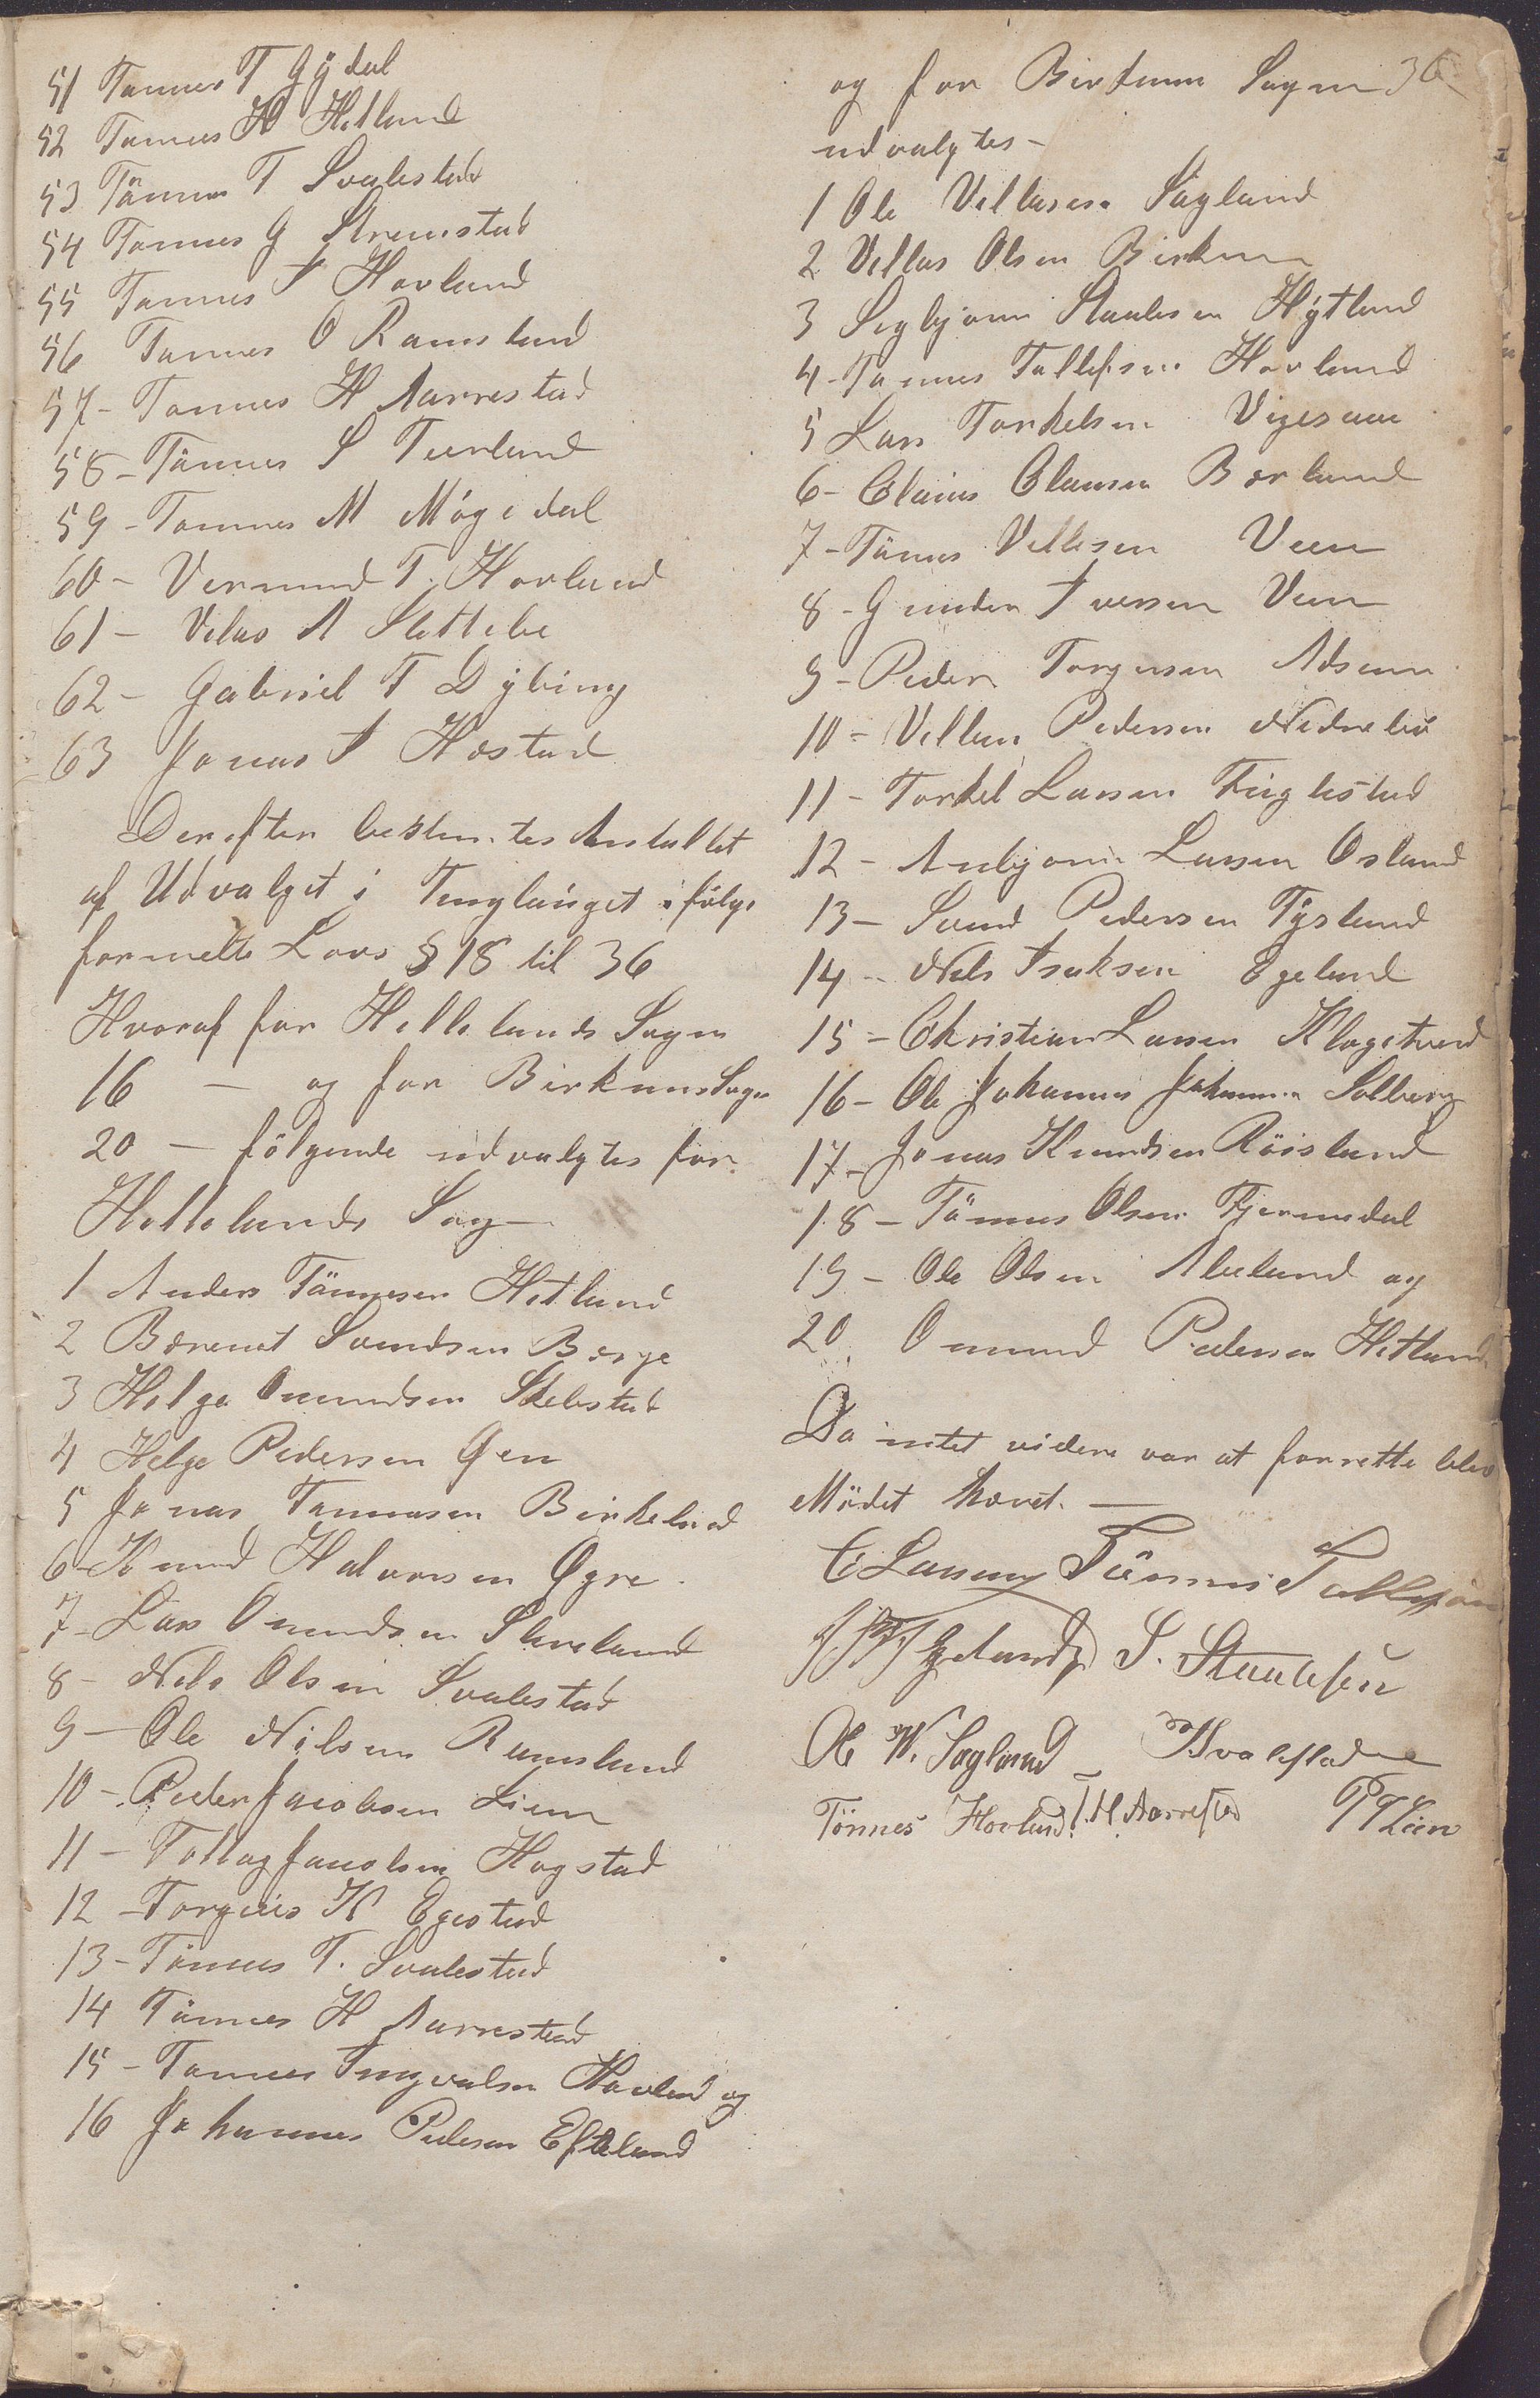 51 Tønnes T Gydal
52 Tønnes H Hetland
53 Tønnes T Svalestad
54 Tønnes G Strømstad
55 Tønnes I Hovland
56 Tønnes O Ramsland
57- Tønnes H Aarrestad
58- Tønnes S Terland
59- Tønnes M Møgedal
60- Vermund T. Hovland
61- Velas A Slettebø
62- Gabriel T Dybing
63 Jonas I Høstad
Derefter bestemtes Antallet
af Udvalget i Tinglauget ifølge
formelte Lovs § 18 til 36
Hvoraf for Hellelands Sogn
16 — og for Birkrems Sogn
20 — følgende udvalgtes for
Hellelands Sogn
1 Anders Tønnesen Hetland
2 Børeuet Svendsen Berge
3 Helge Omundsen Skebstad
4 Helge Pedersen Øen
5 Jonas Tønnesen Birkeland
6- Knud Halvorsen Øgre
7- Lars Omundsen Slaveland
8- Nels Olsen Svalestad
9- Ole Nilsen Ramsland
10- Peder Jacobsen Liem
11- Tollag Jacobsen Hogstad
12- Torgeis K Egestad
13- Tønnes T. Svalestad
14 Tønnes H Aarrestad
15- Tønnes Ingvalsen Hovland og
16 Johannes Pedersen Efteland
og for Birkrem Sogn 36
udvalgtes -
1 Ole Villasen Sagland
2 Villas Olsen Birkrem
3 Sigbjørn Staalesen Hytland
4- Tønnes Tallefsen Hovland
5 Lars Torkelsen Vigesaae
6- Claius Clausen Børland
7- Tønnes Vellesen Veen
8- Gunder Iversen Veen
9- Peder Torgersen Adsem
10- Villum Pedersen Nedrebø
11- Torkel Larsen Fuglestad
12- Anbjørn Larsen Osland
13- Svend Pedersen Tysland
14- Nels Isaksen Egeland
15- Christian Larsen Klogetveed
16- Ole Johannes Johannesen Solberg
17- Jonas Knudsen Røisland
18- Tønnes Olsen Fjermedal
19- Ole Olsen Aleeland og
20 Omund Pedersen Hetland
Da intet videre var at forrette blev
Mødet hævet. —
C Larsen Tönnes Tallefsen
Egelandz S. Staalesen
Ole W. Sagland Svalestad
Tönnes Hovland T. H. Aarrestad P J Liem